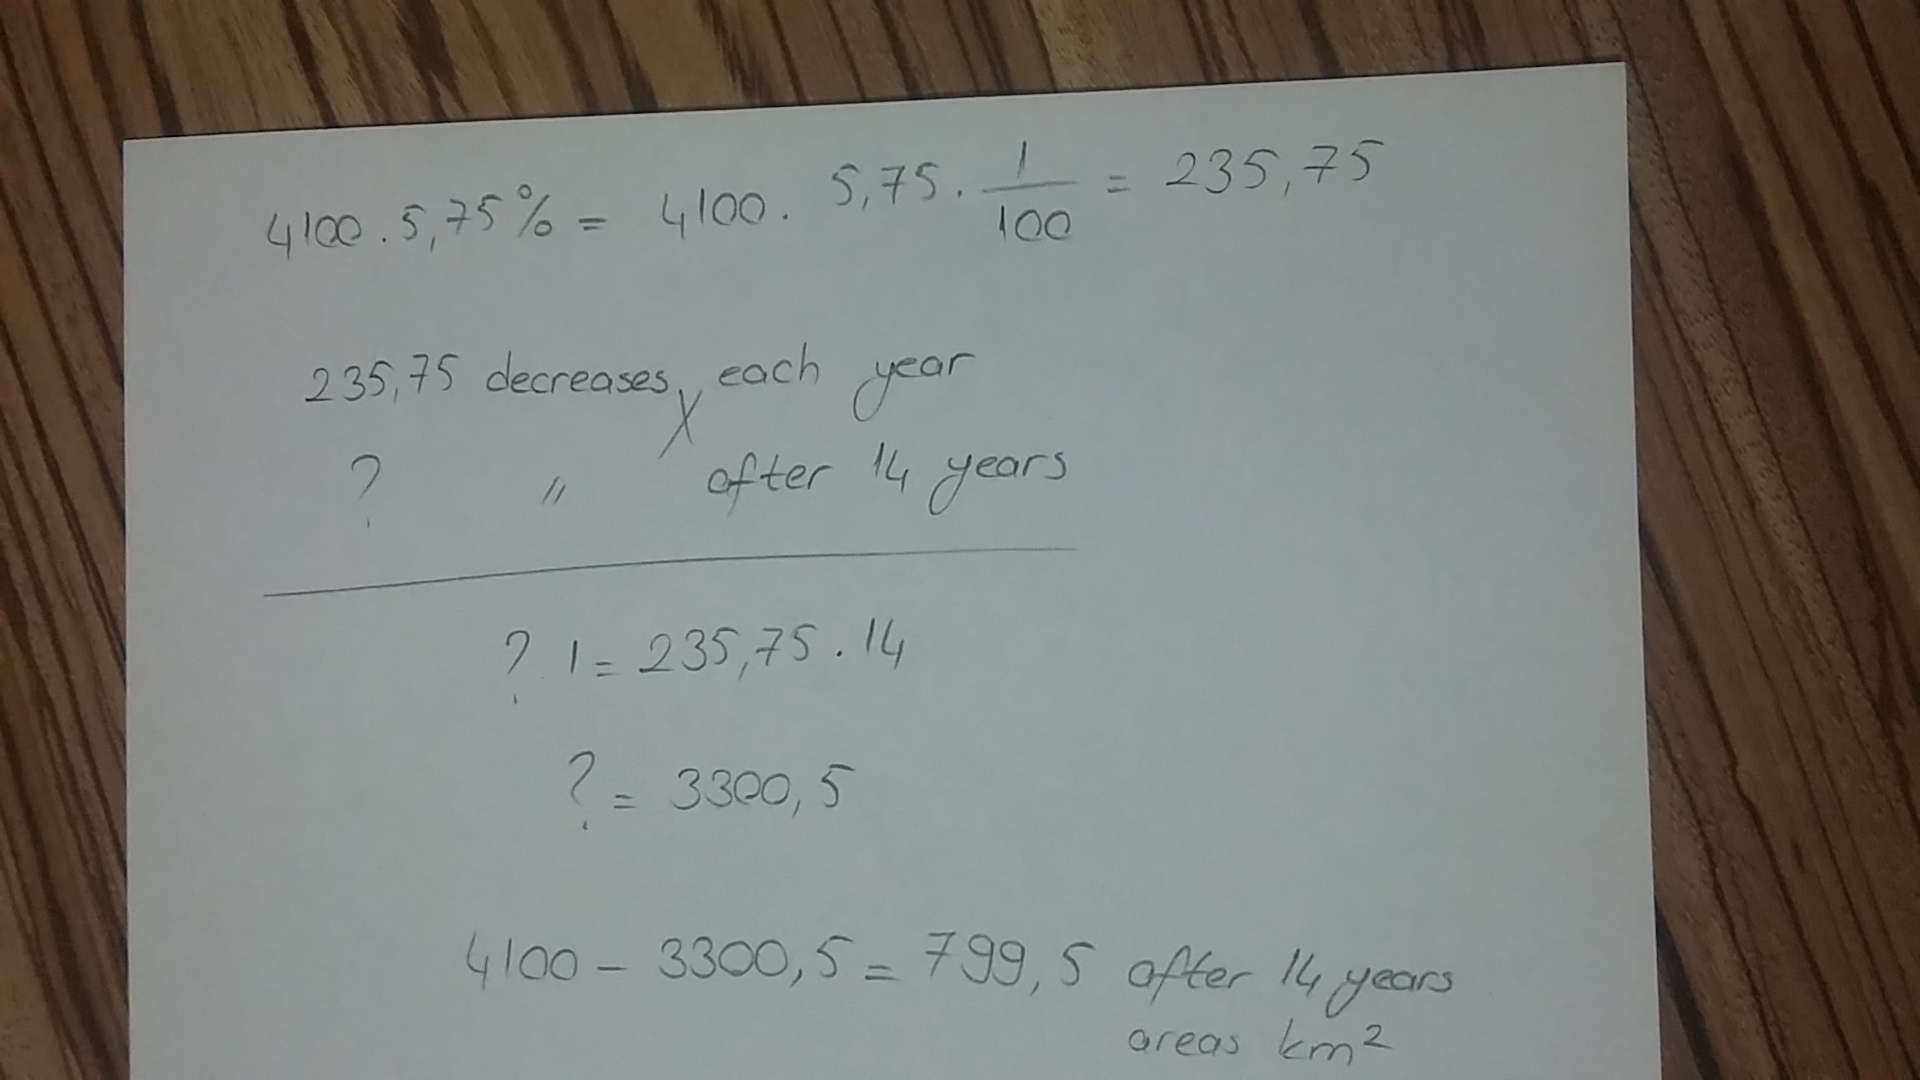 4100 . 5,75% = 4100 . 5,75 . 1/100 = 235,75
235,75 decreases each year
? " after 14 years
? . 1 = 235,75 . 14
? = 3300,5
4100 - 3300,5 = 799,5 after 14 years
areas km²